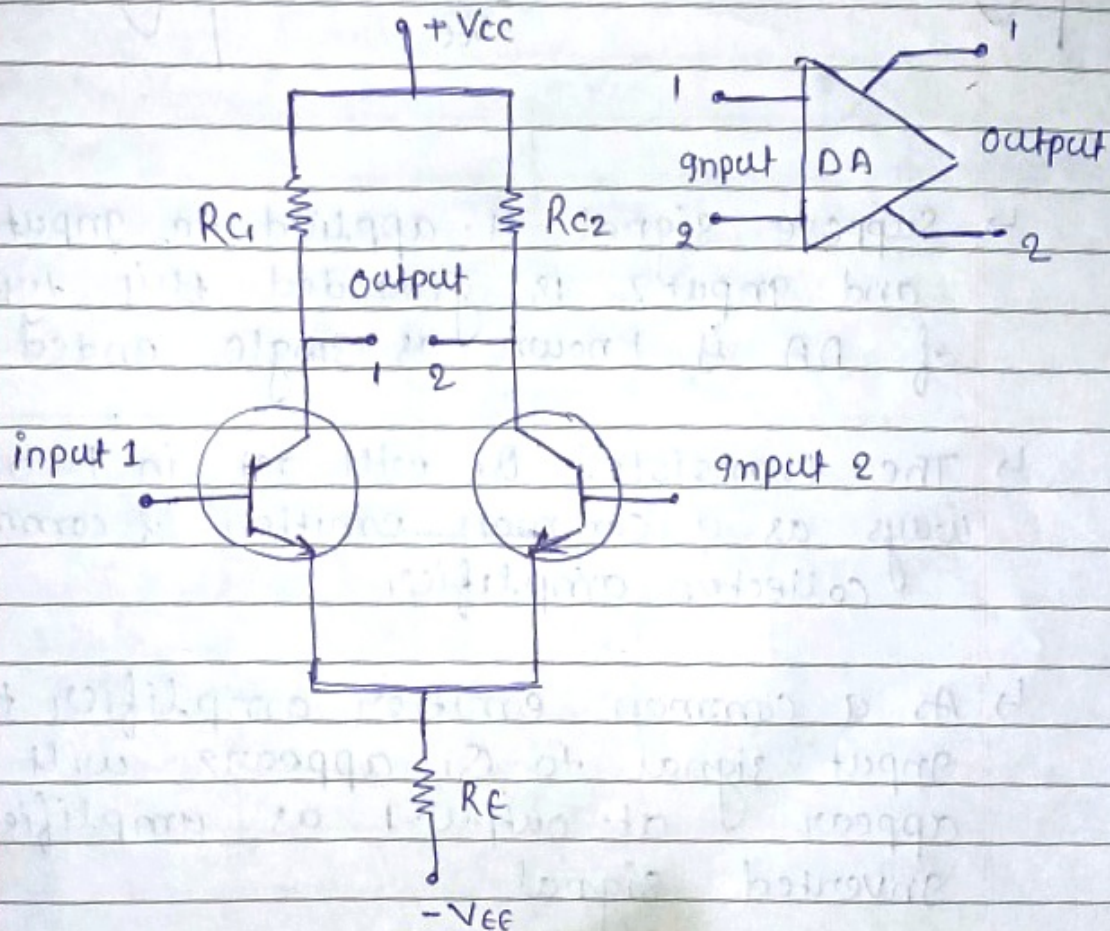 +VCC
1
1
input
DA
output
2
2
RC1
RC2
output
1 2
input 1
input 2
RE
-VEE